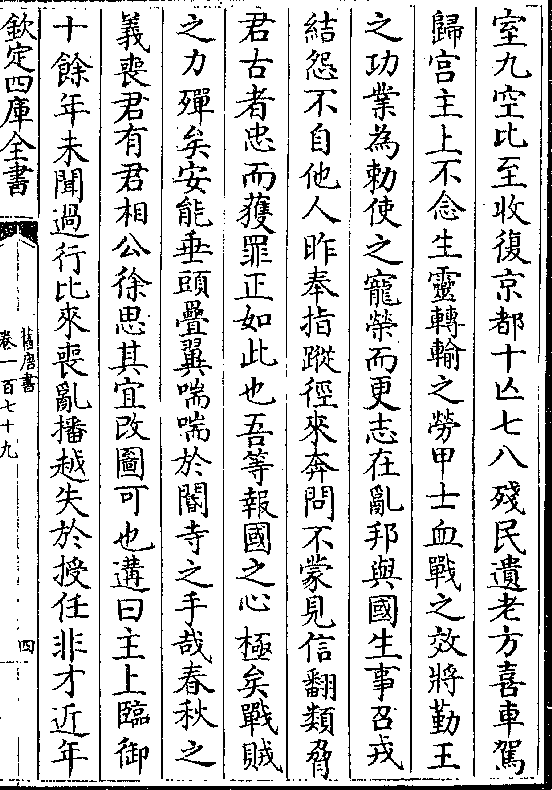 室九空比至收復京都十亡七八殘民遺老方喜車駕
歸宫主上不念生靈轉輸之勞甲士血戰之效將勤王
之功業為勅使之寵榮而更志在亂邦與國生事召戎
結怨不自他人昨奉指蹤徑來奔問不蒙見信翻類脅
君古者忠而獲罪正如此也吾等報國之心極矣戰賊
之力殫矣安能垂頭疊翼喘喘於閽寺之手哉春秋之
義喪君有君相公徐思其宜改圖可也遘曰主上臨御
十餘年未聞過行比來喪亂播越失於授任非才近年
欽定四庫全書
舊唐書
卷一百七十九
四